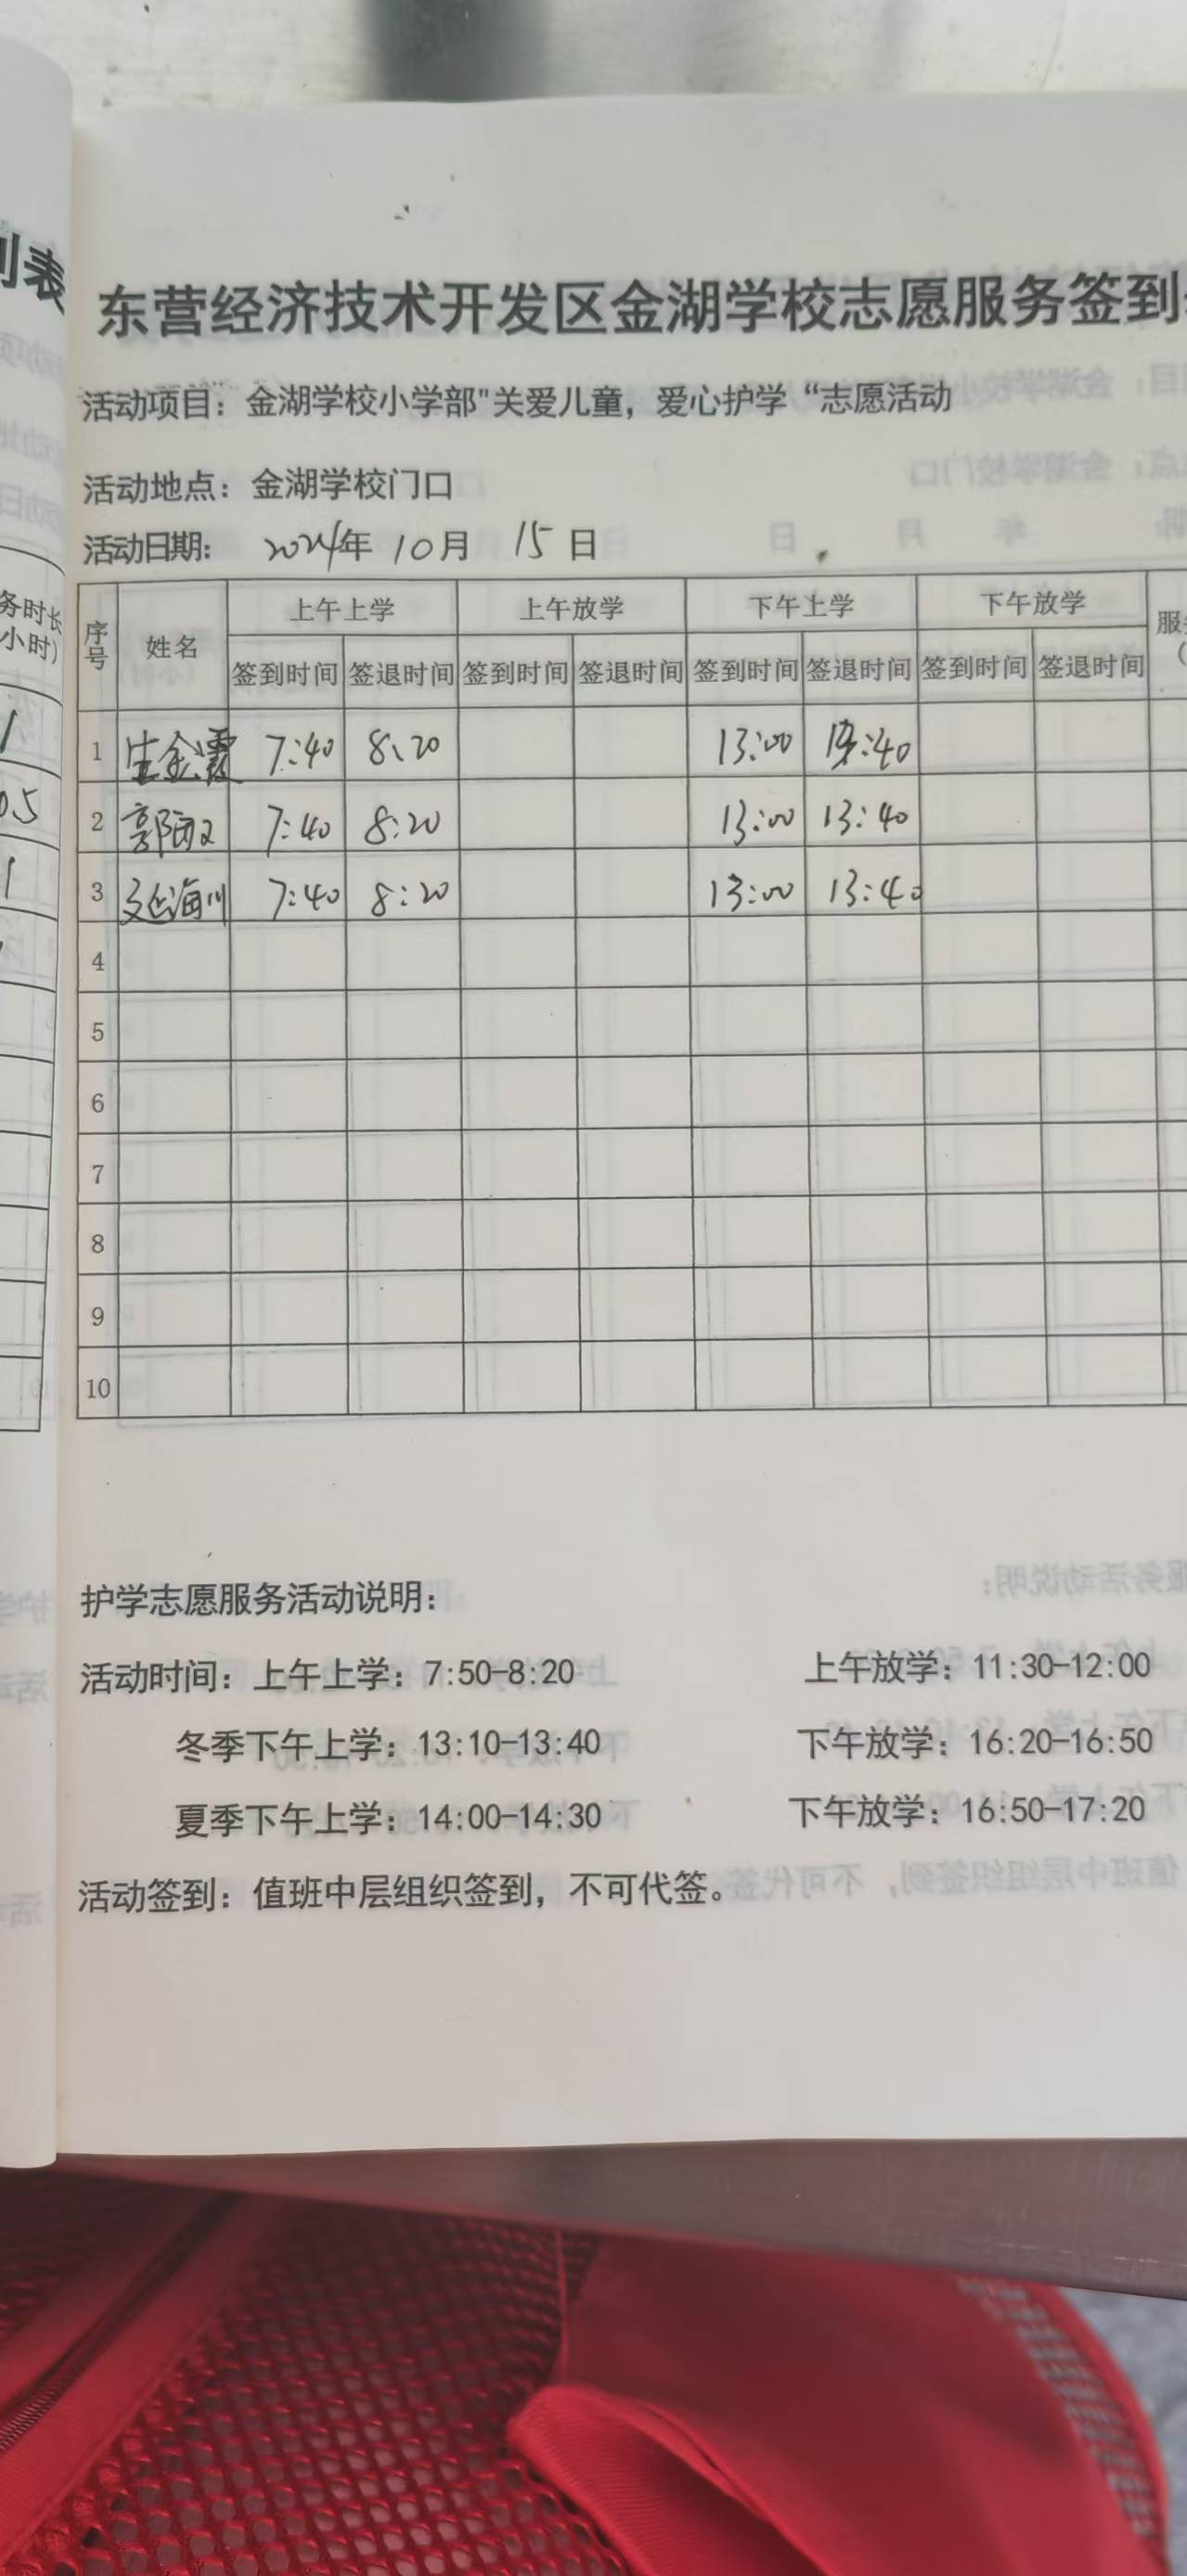 列表
东营经济技术开发区金湖学校志愿服务签到
活动项目：金湖学校小学部"关爱儿童，爱心护学“志愿活动
活动地点：金湖学校门口
活动日期： 2024年 10月 15日
务时长
小时)
序号 姓名 上午上学 上午放学 下午上学 下午放学 服
签到时间 签退时间 签到时间 签退时间 签到时间 签退时间 签到时间 签退时间 (
1 生金霞 7:40 8:20 13:00 13:40
2 郭 7:40 8:20 13:00 13:40
3 延海川 7:40 8:20 13:00 13:40
4
5
6
7
8
9
10
1
0.5
1
护学志愿服务活动说明：
活动时间：上午上学：7:50-8:20 上午放学：11:30-12:00
冬季下午上学：13:10-13:40 下午放学：16:20-16:50
夏季下午上学：14:00-14:30 下午放学：16:50-17:20
活动签到：值班中层组织签到，不可代签。